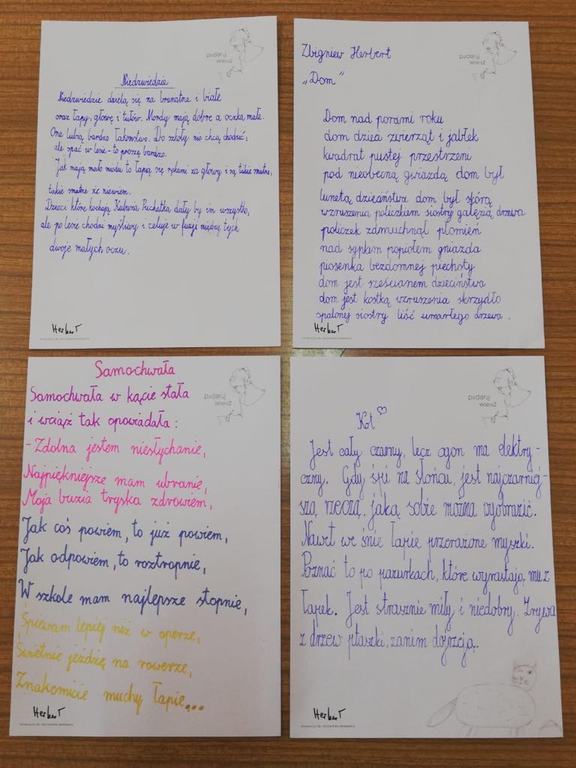 podaruj
wiersz
Niedźwiedzie
Niedźwiedzie dzielą się na brunatne i białe
oraz łapy, głowę i tułów. Mordy mają dobre a oczka małe.
One lubią bardzo łakomstwo. Do szkoły nie chcą chodzić,
ale spać w lesie - to proszę bardzo.
Jak mają mało miodu to łapią się rękami za głowę i są takie smutne,
takie smutne że niewiem.
Dzieci które kochają Kubusia Puchatka dały by im wszystko,
ale po lesie chodzi myśliwy i celuje w fuzji między tych
dwoje małych oczu.
Herbert
podaruj
wiersz
Zbigniew Herbert
„Dom”
Dom nad porami roku
dom dzieci zwierząt i jabłek
kwadrat pustej przestrzeni
pod nieobecną gwiazdą dom był
lunetą dzieciństwa dom był skórą
wzruszenia policzkiem siostry gałęzią drzewa
policzek zdmuchnął płomień
nad sypkim popiołem gniazda
piosenka bezdomnej piechoty
dom jest sześcianem dzieciństwa
dom jest kostką wzruszenia skrzydło
spalonej siostry liść umarłego drzewa.
Herbert
podaruj
wiersz
Samochwała
Samochwała w kącie stała
i wciąż tak opowiadała:
-Zdolna jestem niesłychanie,
Najpiękniejsze mam ubranie,
Moja buzia tryska zdrowiem,
Jak coś powiem, to już powiem,
Jak odpowiem, to roztropnie,
W szkole mam najlepsze stopnie,
Śpiewam lepiej niż w operze,
Świetnie jeżdżę na rowerze,
Znakomicie muchy łapię...
Herbert
podaruj
wiersz
Kot
Jest cały czarny, lecz ogon ma elektry-
czny. Gdy śpi na słońcu, jest najczarniej-
szą rzeczą, jaką sobie można wyobrazić.
Nawet we śnie łapie przerażone myszki.
Poznać to po pazurkach, które wyrastają mu z
łapek. Jest strasznie miły i niedobry. Zrywa
z drzew ptaszki, zanim dojrzeją.
Herbert